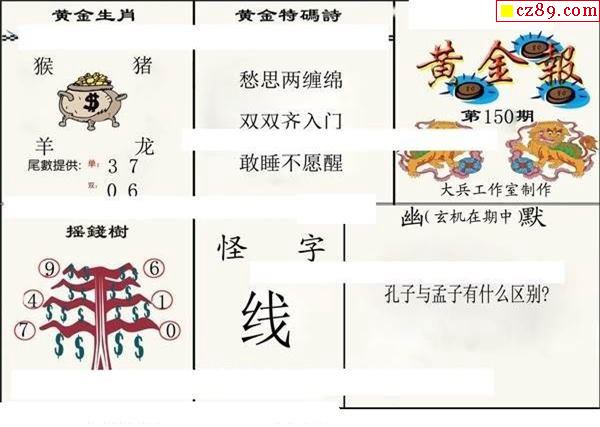 cz89.com
黄金生肖
猴 猪
羊 龙
尾數提供: 单: 3 7
双: 0 6
黄金特碼詩
愁思两缠绵
双双齐入门
敢睡不愿醒
黄金報
第150期
大兵工作室制作
摇錢樹
9 6
4 1
7 0
怪 字
线
幽(玄机在期中)默
孔子与孟子有什么区别?